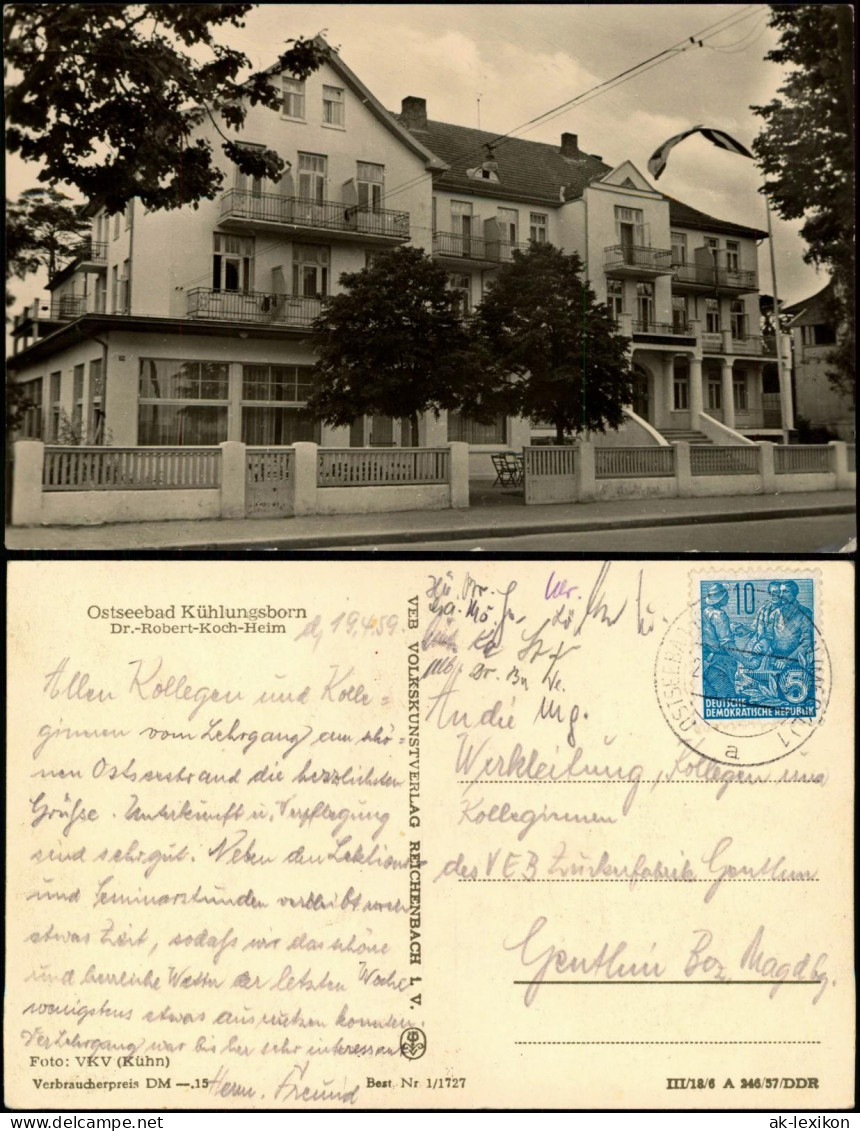 Ostseebad Kühlungsborn
Dr.-Robert-Koch-Heim
d, 19.4.59.
Allen Kollegen und Kolle=
ginnen vom Lehrgang am schö=
nen Ostseestrand die herzlichsten
Grüße. Unterkunft u. Verpflegung
sind sehr gut. Neben den Lektionen
und Seminarstunden verbleibt noch
etwas Zeit, sodaß wir das schöne
und herrliche Wetter der letzten Woche
wenigstens etwas ausnutzen konnten.
Der Lehrgang war bis her sehr interessant
Herm. Freund
Foto: VKV (Kühn)
Verbraucherpreis DM —.15
Best. Nr 1/1727
VEB VOLKSKUNSTVERLAG REICHENBACH i. V.
10
5
DEUTSCHE
DEMOKRATISCHE REPUBLIK
OSTSEEBAD
a
An die
Werkleitung, Kollegen und
Kolleginnen
des VEB Zuckerfabrik Genthin
Genthin Bez. Magdbg.
III/18/6 A 246/57/DDR
ak-lexikon.com